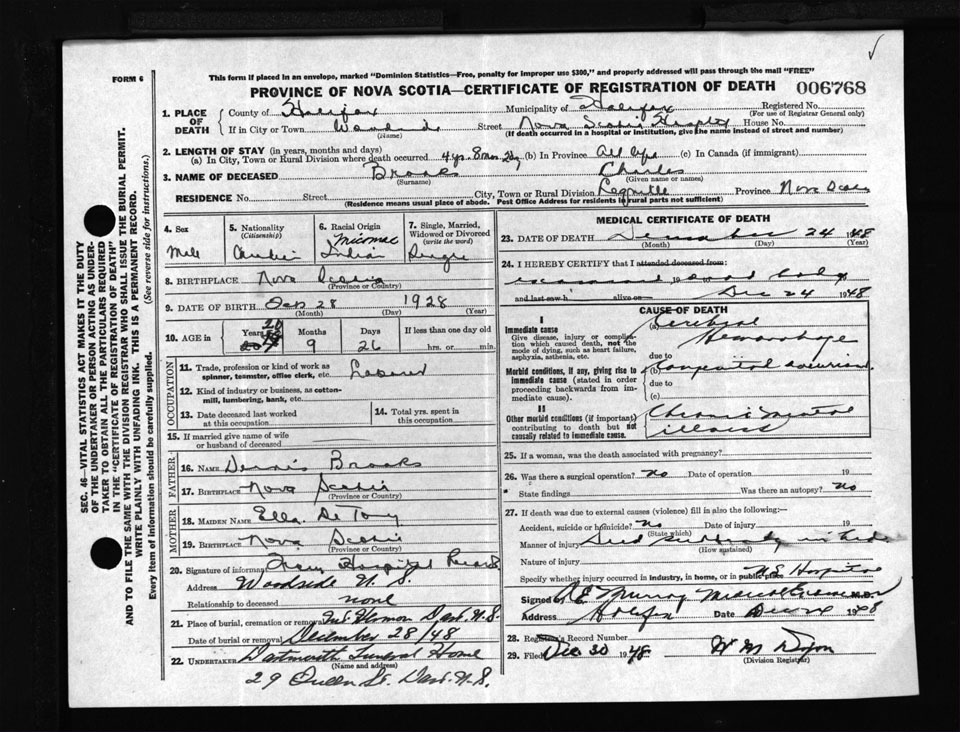 FORM 6
This form if placed in an envelope, marked "Dominion Statistics—Free, penalty for improper use $300," and properly addressed will pass through the mail "FREE"
PROVINCE OF NOVA SCOTIA—CERTIFICATE OF REGISTRATION OF DEATH 006768
1. PLACE OF DEATH
County of Halifax Municipality of Halifax Registered No.
(For use of Registrar General only)
If in City or Town Woodside Street Nova Scotia Hospital House No.
(Name) (If death occurred in a hospital or institution, give the name instead of street and number)
2. LENGTH OF STAY (in years, months and days)
(a) In City, Town or Rural Division where death occurred 4 yrs. 8 mos. (b) In Province All life (c) In Canada (if immigrant)
3. NAME OF DECEASED Brooks Charles
(Surname) (Given name or names)
RESIDENCE No. Street City, Town or Rural Division Province Nova Scotia
(Residence means usual place of abode. Post Office Address for residents in rural parts not sufficient)
SEC. 46—VITAL STATISTICS ACT MAKES IT THE DUTY
OF THE UNDERTAKER OR PERSON ACTING AS UNDER-
TAKER TO OBTAIN ALL THE PARTICULARS REQUIRED
IN THE "CERTIFICATE OF REGISTRATION OF DEATH"
AND TO FILE THE SAME WITH THE DIVISION REGISTRAR WHO SHALL ISSUE THE BURIAL PERMIT.
WRITE PLAINLY WITH UNFADING INK. THIS IS A PERMANENT RECORD.
Every item of information should be carefully supplied. (See reverse side for instructions.)
4. Sex
Male
5. Nationality
(Citizenship)
6. Racial Origin
Micmac
Indian
7. Single, Married,
Widowed or Divorced
(write the word)
Single
8. BIRTHPLACE Nova Scotia
(Province or Country)
9. DATE OF BIRTH 28 1928
(Month) (Day) (Year)
10. AGE in
Years 20
Months 9
Days 26
If less than one day old
hrs. or min.
OCCUPATION
11. Trade, profession or kind of work as
spinner, teamster, office clerk, etc. Laborer
12. Kind of industry or business, as cotton-
mill, lumbering, bank, etc.
13. Date deceased last worked
at this occupation
14. Total yrs. spent in
this occupation
15. If married give name of wife
or husband of deceased
FATHER
16. NAME Dennis Brooks
17. BIRTHPLACE Nova Scotia
(Province or Country)
MOTHER
18. MAIDEN NAME Ella De Tony
19. BIRTHPLACE Nova Scotia
(Province or Country)
20. Signature of informant From Hospital Records
Address Woodside N. S.
Relationship to deceased none
21. Place of burial, cremation or removal Mt. Hermon Dart. N. S.
Date of burial or removal December 28/48
22. UNDERTAKER Dartmouth Funeral Home
(Name and address)
29 Queen St. Dart. N. S.
MEDICAL CERTIFICATE OF DEATH
23. DATE OF DEATH December 24 1948
(Month) (Day) (Year)
24. I HEREBY CERTIFY that I attended deceased from:
examined dead body
and last saw h alive on Dec 24 1948
CAUSE OF DEATH
I
Immediate cause
Give disease, injury or complica-
tion which caused death, not the
mode of dying, such as heart failure,
asphyxia, asthenia, etc.
(a) Cerebral
Hemorrhage
due to
Morbid conditions, if any, giving rise to
immediate cause (stated in order
proceeding backwards from im-
mediate cause).
(b) Congenital aneurism
due to
(c)
II
Other morbid conditions (if important)
contributing to death but not
causally related to immediate cause.
Chronic mental
illness
25. If a woman, was the death associated with pregnancy?
26. Was there a surgical operation? no Date of operation 19
State findings Was there an autopsy? no
27. If death was due to external causes (violence) fill in also the following:—
Accident, suicide or homicide? no Date of injury 19
(State which)
Manner of injury Died suddenly in bed
(How sustained)
Nature of injury
Specify whether injury occurred in industry, in home, or in public place N.S. Hospital
Signed Murray Medical Examiner M.D.
Address Halifax Date 1948
28. Registrar's Record Number
29. Filed Dec 30 1948
(Division Registrar)